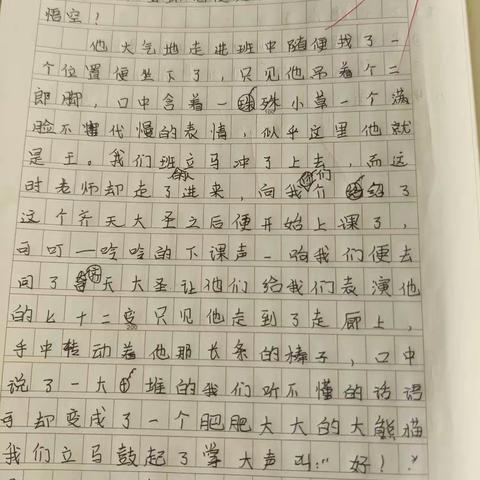 悟空!
他大气地走进班中随便找了一
个位置便坐下了,只见他吊着个二
郎脚,口中含着一殊小草一个满
脸不代慢的表情,似乎这里他就
是王。我们班立马冲了上去,而这
时老师却走了进来,向我们介绍了
这个齐天大圣之后便开始上课了,
可叮一呤呤的下课声一响我们便去
问了齐天大圣让他们给我们表演他
的七十二变只见他走到了走廊上,
手中转动着他那长条的棒子,口中
说了一大堆的我们听不懂的话语
可却变成了一个肥肥大大的大熊猫
我们立马鼓起了掌大声叫:"好!"